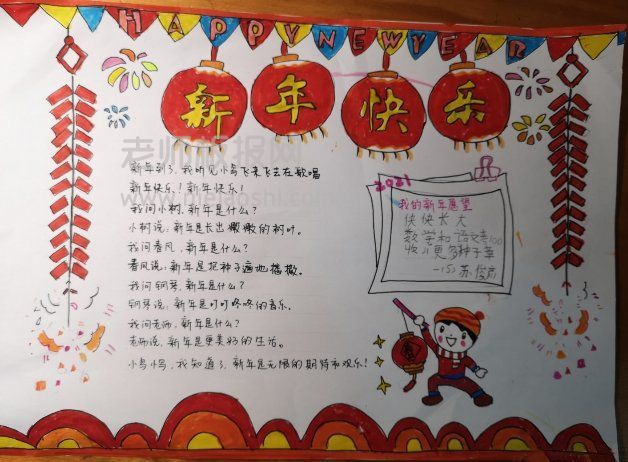 HAPPY NEW YEAR
新年快乐
老师板报网
新年到了,我听见小鸟飞来飞去在歌唱
新年快乐!新年快乐!
我问小树,新年是什么?
小树说:新年是长出嫩嫩的树叶。
我问春风,新年是什么?
春风说:新年是把种子遍地播撒。
我问钢琴,新年是什么?
钢琴说:新年是叮叮咚咚的音乐。
我问老师,新年是什么?
老师说,新年是更美好的生活。
小鸟小鸟,我知道了,新年是无限的期待和欢乐!
2021
我的新年愿望
快快长大
数学和语文考100
收到更多种子章
春